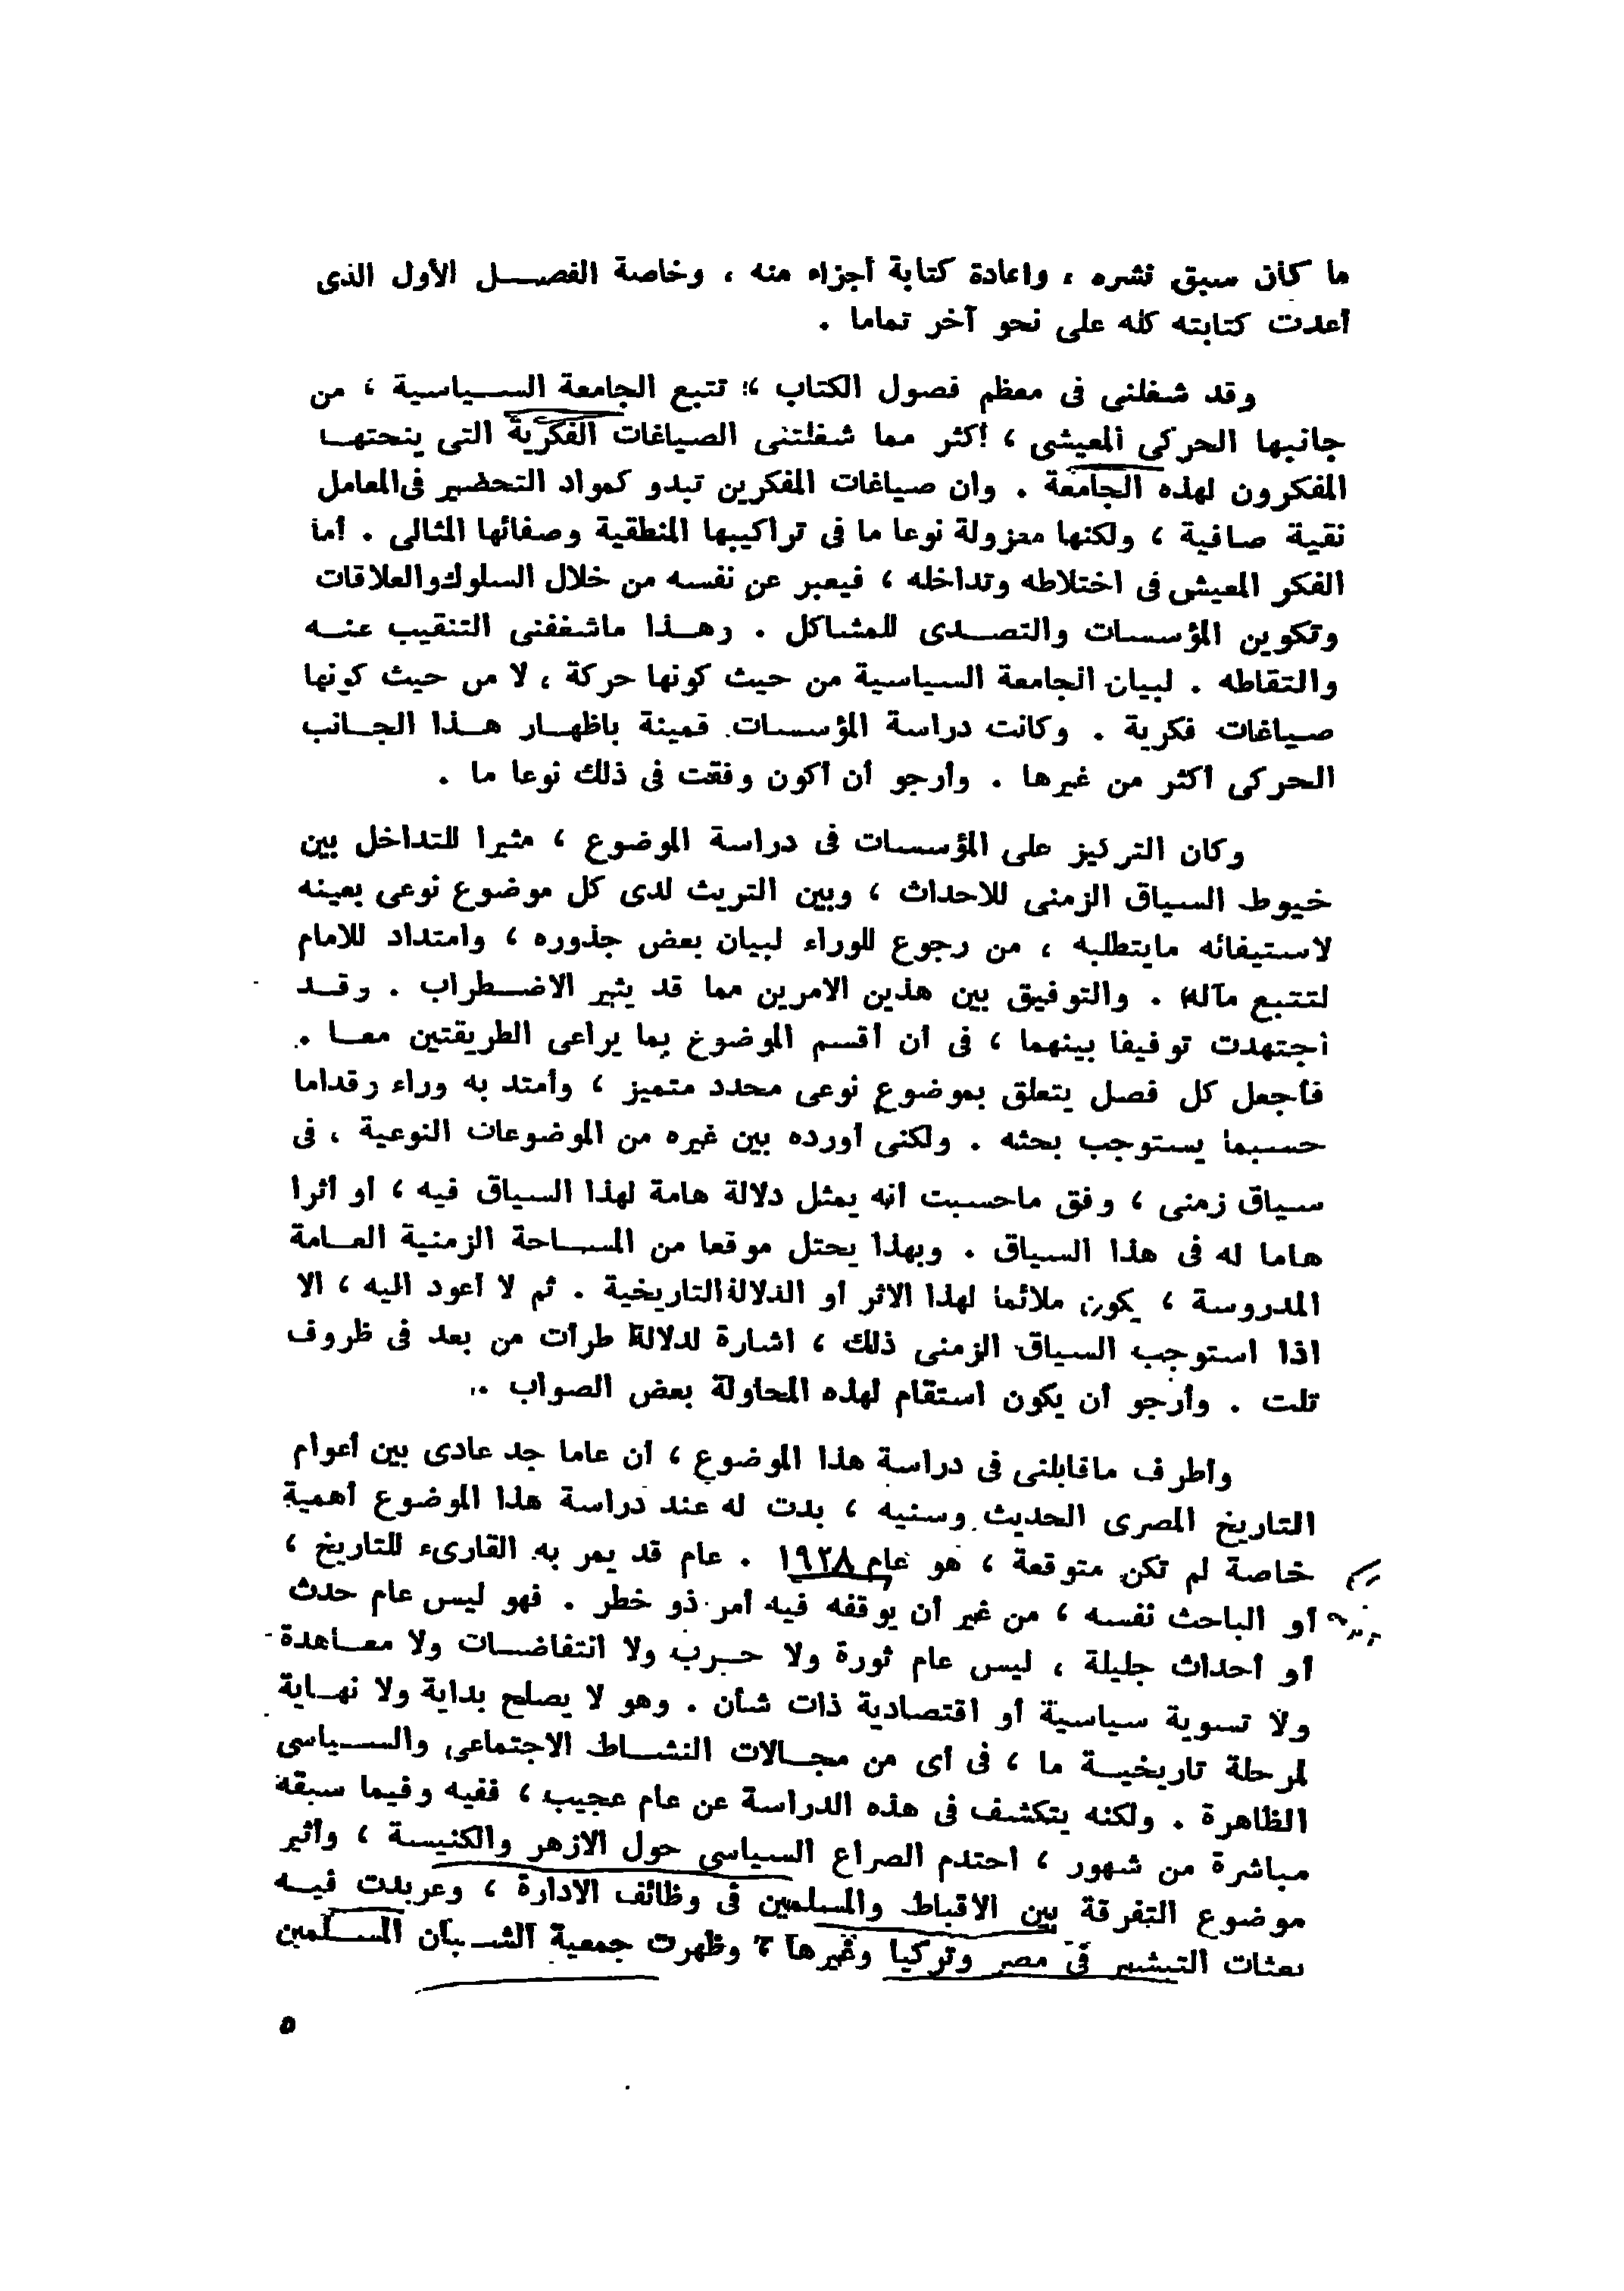 ما كان سبق نشره ، واعادة كتابة أجزاء منه ، وخاصة الفصل الأول الذى
أعدت كتابته كله على نحو آخر تماما .
وقد شغلنى فى معظم فصول الكتاب ، تتبع الجامعة السياسية ، من
جانبها الحركى المعيشى ، أكثر مما شغلتنى الصياغات الفكرية التى ينحتها
المفكرون لهذه الجامعة . وان صياغات المفكرين تبدو كمواد التحضير فى المعامل
نقية صافية ، ولكنها معزولة نوعا ما فى تراكيبها المنطقية وصفائها المثالى . أما
الفكر المعيش فى اختلاطه وتداخله ، فيعبر عن نفسه من خلال السلوك والعلاقات
وتكوين المؤسسات والتصدى للمشاكل . وهذا ماشغفنى التنقيب عنه
والتقاطه . لبيان الجامعة السياسية من حيث كونها حركة ، لا من حيث كونها
صياغات فكرية . وكانت دراسة المؤسسات قمينة باظهار هذا الجانب
الحركى أكثر من غيرها . وأرجو أن أكون وفقت فى ذلك نوعا ما .
وكان التركيز على المؤسسات فى دراسة الموضوع ، مثيرا للتداخل بين
خيوط السياق الزمنى للاحداث ، وبين التريث لدى كل موضوع نوعى بعينه
لاستيفائه مايتطلبه ، من رجوع للوراء لبيان بعض جذوره ، وامتداد للامام
لتتبع مآله . والتوفيق بين هذين الامرين مما قد يثير الاضطراب . وقد
أجتهدت توفيقا بينهما ، فى أن أقسم الموضوع بما يراعى الطريقتين معا .
فأجعل كل فصل يتعلق بموضوع نوعى محدد متميز ، وأمتد به وراء وقداما
حسبما يستوجب بحثه . ولكنى أورده بين غيره من الموضوعات النوعية ، فى
سياق زمنى ، وفق ماحسبت أنه يمثل دلالة هامة لهذا السياق فيه ، أو أثرا
هاما له فى هذا السياق . وبهذا يحتل موقعا من المساحة الزمنية العامة
المدروسة ، يكون ملائما لهذا الاثر أو الدلالة التاريخية . ثم لا أعود اليه ، الا
اذا استوجب السياق الزمنى ذلك ، اشارة لدلالة طرأت من بعد فى ظروف
تلت . وأرجو أن يكون استقام لهذه المحاولة بعض الصواب .
وأطرف ماقابلنى فى دراسة هذا الموضوع ، أن عاما جد عادى بين أعوام
التاريخ المصرى الحديث وسنيه ، بدت له عند دراسة هذا الموضوع أهمية
خاصة لم تكن متوقعة ، هو عام ١٩٢٨ . عام قد يمر به القارىء للتاريخ ،
أو الباحث نفسه ، من غير أن يوقفه فيه أمر ذو خطر . فهو ليس عام حدث
أو أحداث جليلة ، ليس عام ثورة ولا حرب ولا انتفاضات ولا معاهدة
ولا تسوية سياسية أو اقتصادية ذات شأن . وهو لا يصلح بداية ولا نهاية
لمرحلة تاريخية ما ، فى أى من مجالات النشاط الاجتماعى والسياسى
الظاهرة . ولكنه يتكشف فى هذه الدراسة عن عام عجيب ، ففيه وفيما سبقه
مباشرة من شهور ، احتدم الصراع السياسى حول الازهر والكنيسة ، وأثير
موضوع التفرقة بين الاقباط والمسلمين فى وظائف الادارة ، وعربدت فيه
بعثات التبشير فى مصر وتركيا وغيرها ، وظهرت جمعية الشبان المسلمين
٥